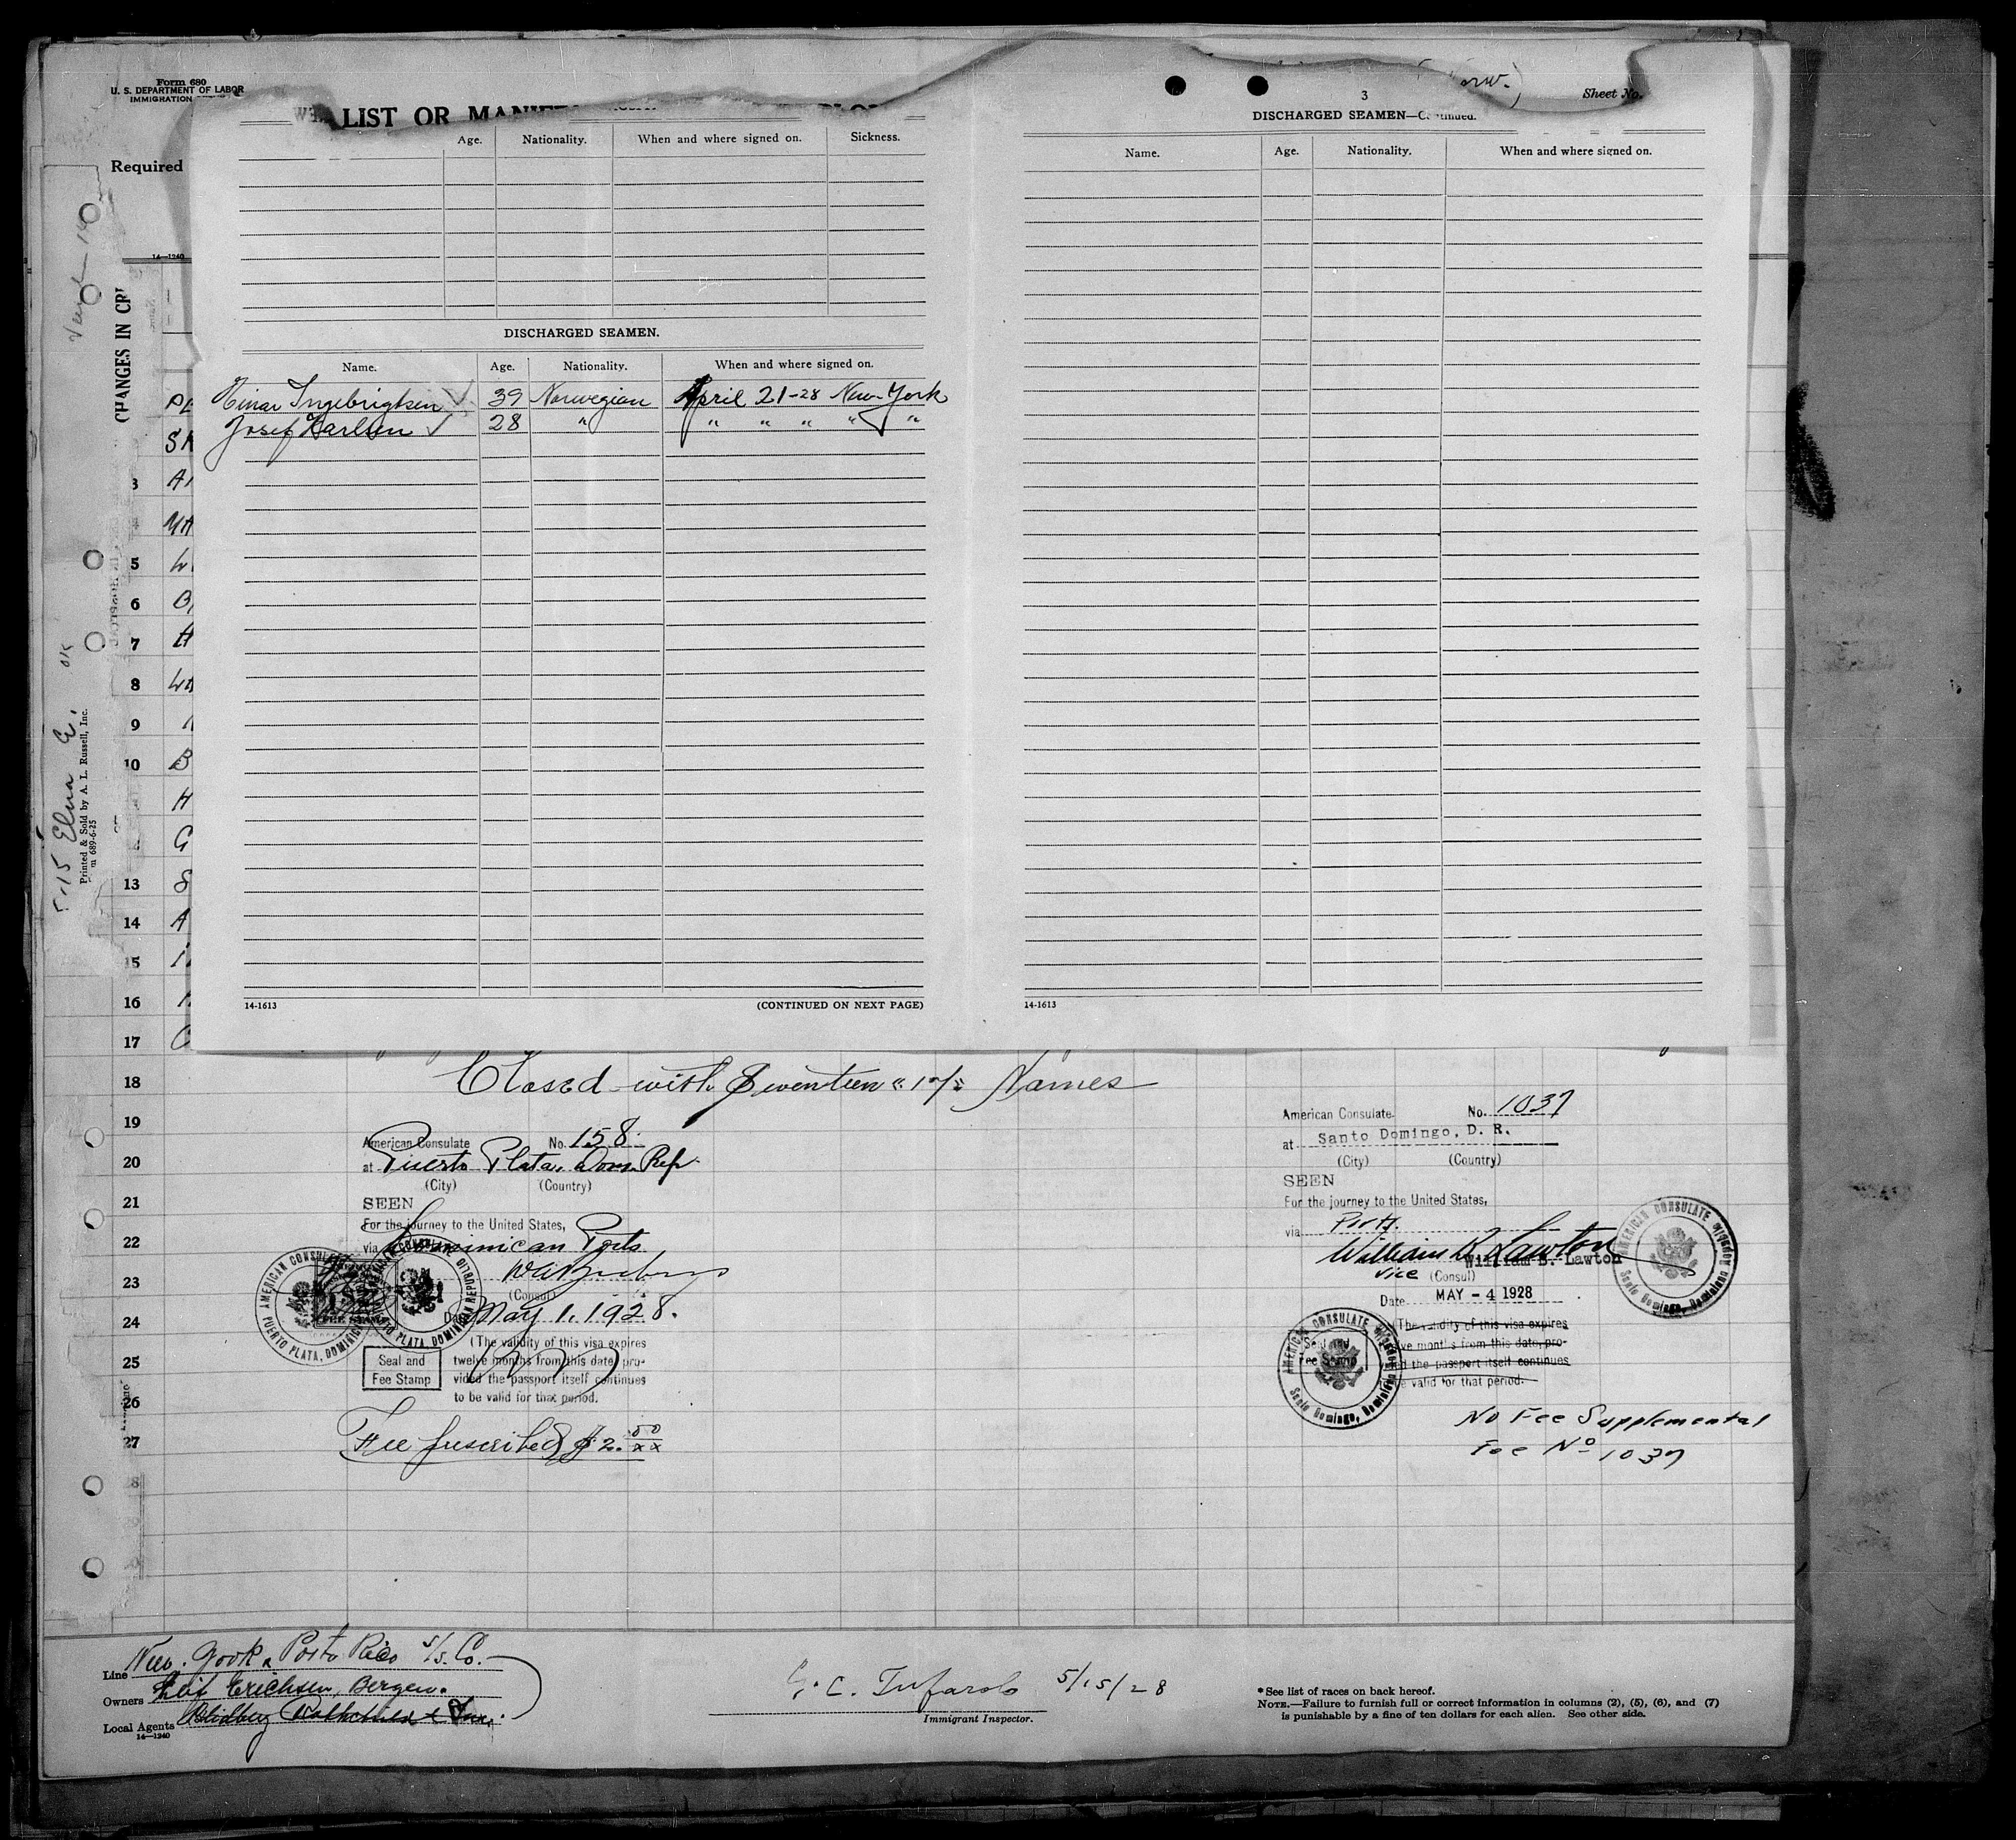 Form 680
U. S. DEPARTMENT OF LABOR
IMMIGRATION
LIST OR
Required
14—1240
Sheet No.
Age. Nationality. When and where signed on. Sickness.
DISCHARGED SEAMEN.
Name. Age. Nationality. When and where signed on.
Einar Ingebrigtsen √ 39 Norwegian April 21-28 New York
Josef Karlsen √ 28 " " " " " "
14-1613 (CONTINUED ON NEXT PAGE)
3
DISCHARGED SEAMEN—Continued.
Name. Age. Nationality. When and where signed on.
14-1613
CHANGES IN
OK
5-15 Elna E.
Printed & Sold by A. L. Russell, Inc.
689-6-25
3
5
6
7
8
9
10
13
14
15
16
17
18 Closed with Seventeen "17" Names
19
20
21
22
23
24
25
26
27
American Consulate No. 158.
at Puerto Plata, Dom. Rep.
(City) (Country)
SEEN
For the journey to the United States,
via Dominican Ports
(Consul)
Date May 1, 1928.
(The validity of this visa expires
twelve months from this date, pro-
vided the passport itself continues
to be valid for that period.
Seal and
Fee Stamp
AMERICAN CONSULATE
PUERTO PLATA, DOMINICAN REPUBLIC
Fee prescribed $2.50/xx
American Consulate No. 1037
at Santo Domingo, D. R.
(City) (Country)
SEEN
For the journey to the United States,
via
William B. Lawton
William B. Lawton
Vice (Consul)
Date MAY - 4 1928
(The validity of this visa expires
ve months from this date, pro-
d the passport itself continues
e valid for that period.
Seal and
Fee Stamp
AMERICAN CONSULATE
Santo Domingo, Dominican Republic
AMERICAN CONSULATE
Santo Domingo, Dominican Republic
No Fee Supplemental
Fee No 1037
Line New York & Porto Rico S/S. Co.
Owners Leif Erichsen, Bergen.
Local Agents
14—1240
5/15/28
Immigrant Inspector.
* See list of races on back hereof.
NOTE.—Failure to furnish full or correct information in columns (2), (5), (6), and (7)
is punishable by a fine of ten dollars for each alien. See other side.